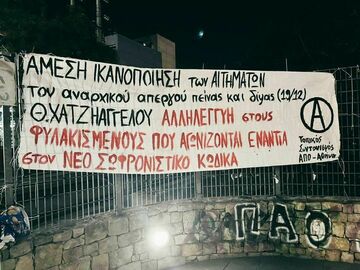 ΑΜΕΣΗ ΙΚΑΝΟΠΟΙΗΣΗ των ΑΙΤΗΜΑΤΩΝ
του αναρχικού απεργού πείνας και δίψας (19/12)
Θ. ΧΑΤΖΗΑΓΓΕΛΟΥ ΑΛΛΗΛΕΓΓΥΗ στους
ΦΥΛΑΚΙΣΜΕΝΟΥΣ ΠΟΥ ΑΓΩΝΙΖΟΝΤΑΙ ΕΝΑΝΤΙΑ
στον ΝΕΟ ΣΩΦΡΟΝΙΣΤΙΚΟ ΚΩΔΙΚΑ
Α
Τοπικός
Συντονισμός
ΑΠΟ-Αθήνα
ΠΑΟ